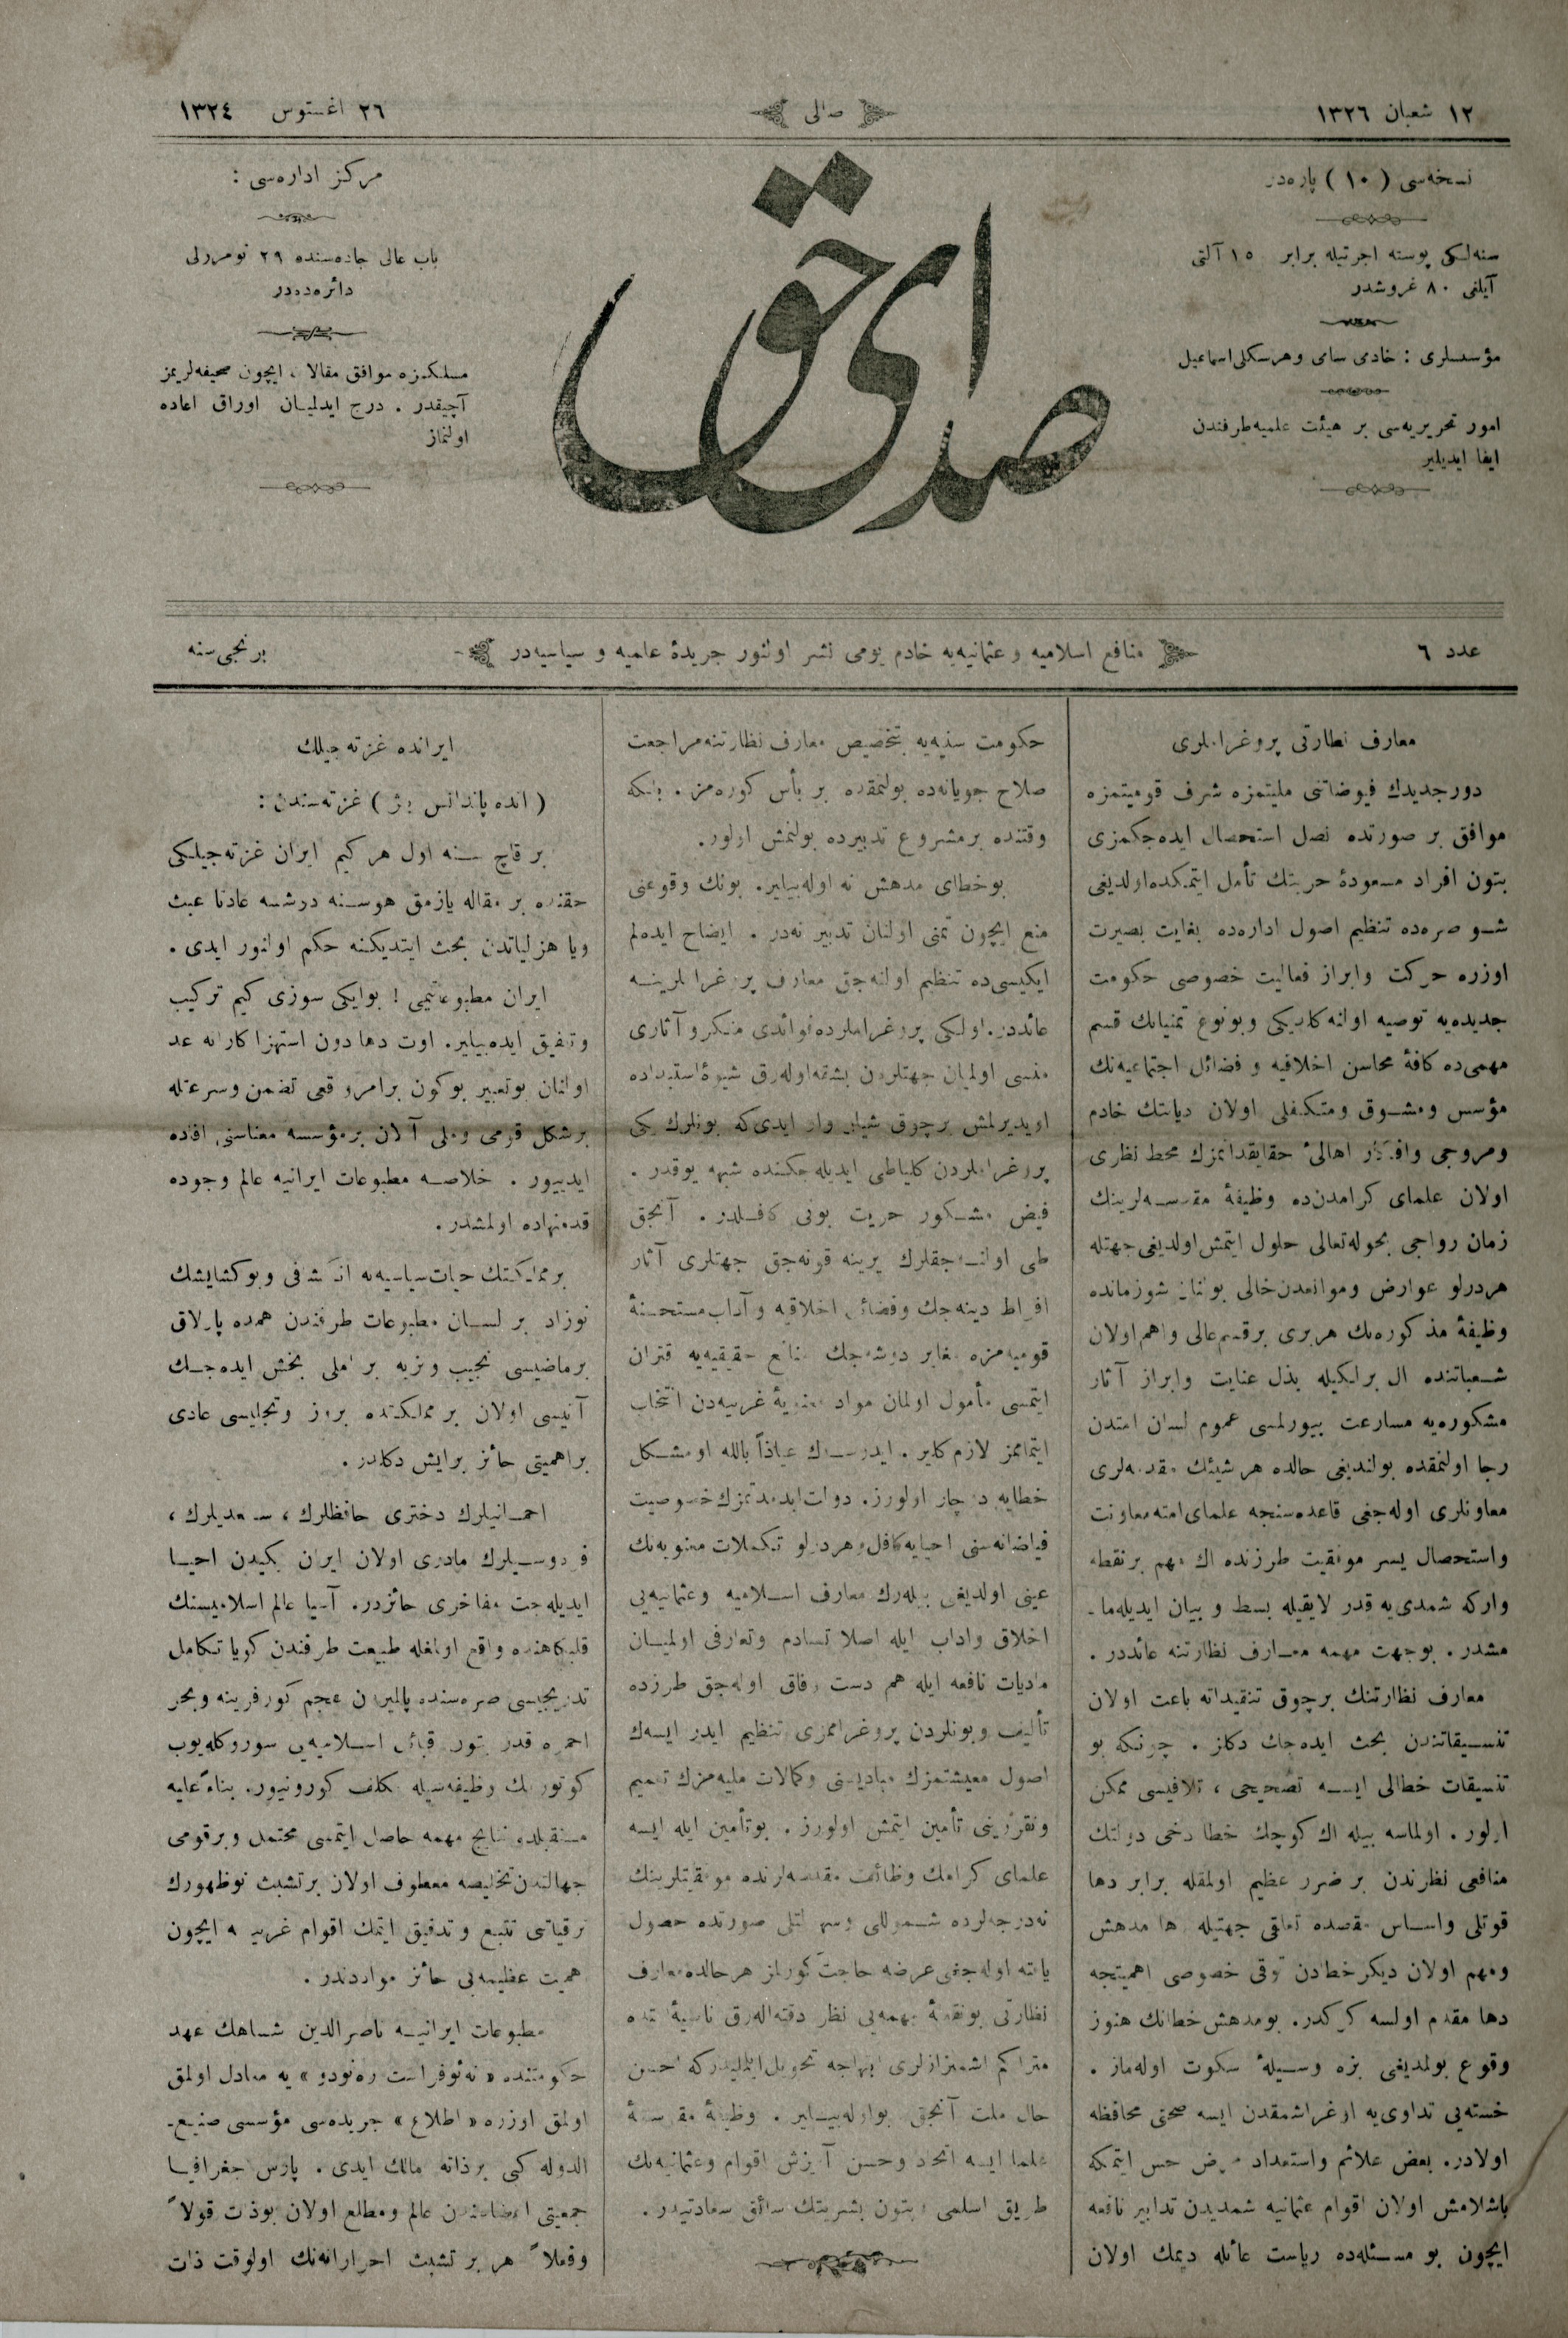 ١٢ شعبان ١٣٢٦
صالی
٢٦ اغستوس ١٣٢٤
نسخه‌سی ( ١٠ ) پاره‌در
سنه‌لكی پوسته اجرتیله برابر ١٥٠ آلتی
آیلغی ٨٠ غروشدر
مؤسسلری : خادمی سامی وهرسكلی اسماعیل
امور تحریریه‌سی بر هیئت علمیه طرفندن
ایفا ایدیلیر
صدای حق
مركز اداره‌سی :
باب عالی جاده‌سنده ٢٩ نومرولی
دائره‌در
مسلكمزه موافق مقالات ایچون صحیفه‌لریمز
آچیقدر . درج ایدلمیان اوراق اعاده
اولنماز
عدد ٦
منافع اسلامیه و عثمانیه‌یه خادم یومی نشر اولنور جریدهٔ علمیه و سیاسیه‌در
برنجی سنه
معارف نظارتی پروغراملری
دور جدیدك فیوضاتنی ملیتمزه شرف قومیتمزه
موافق بر صورتده نصل استحصال ایده‌جكمزی
بتون افراد مسعودهٔ حریتك تأمل ایتمكده اولدیغی
شو صره‌ده تنظیم اصول اداره‌ده بغایت بصیرت
اوزره حركت وابراز فعالیت خصوصی حكومت
جدیده‌یه توصیه اولنه‌كلدیكی وبونوع تمنیاتك قسم
مهمی‌ده كافهٔ محاسن اخلاقیه و فضائل اجتماعیه‌نك
مؤسس ومشوق ومتكفلی اولان دیانتك خادم
ومروجی وافكار اهالیٔ حقایقدانمزك محط نظری
اولان علمای كرامدن‌ده وظیفهٔ مقدسه‌لرینك
زمان رواجی بحوله تعالی حلول ایتمش اولدیغی جهتله
هردرلو عوارض وموانعدن خالی بولنان شوزمانده
وظیفهٔ مذكوره‌نك هربری برقسم عالی واهم اولان
شعباتنده ال برلكیله بذل عنایت وابراز آثار
مشكوره‌یه مسارعت بیورلمسی عموم لسان امتدن
رجا اولنمقده بولندیغی حالده هر شیئك مقدمه‌لری
معاونلری اوله‌جغی قاعده‌سنجه علمای امته معاونت
واستحصال یسر موفقیت طرزنده اك مهم برنقطه
واركه شمدی‌یه قدر لایقیله بسط و بیان ایدیله‌ما-
مشدر . بوجهت مهمه معارف نظارتنه عائددر .
معارف نظارتنك برچوق تنقیداته باعث اولان
تنسیقاتندن بحث ایده‌جك دكلز . چونكه بو
تنسیقات خطالی ایسه تصحیحی ، تلافیسی ممكن
اولور . اولماسه بیله اك كوچك خطا دخی دولتك
منافعی نظرندن بر ضرر عظیم اولمقله برابر دها
قوتلی واساس مقصده تعلقی جهتیله دها مدهش
ومهم اولان دیكر خطادن توقی خصوصی اهمیتجه
دها مقدم اولسه كركدر. بومدهش خطانك هنوز
وقوع بولمدیغی بزه وسیلهٔ سكوت اوله‌ماز .
خسته‌یی تداوی‌یه اوغراشمقدن ایسه صحتی محافظه
اولادر. بعض علائم واستعداد مرض حس ایتمكه
باشلامش اولان اقوام عثمانیه شمدیدن تدابیر نافعه
ایچون بو مسئله‌ده ریاست عائله دیمك اولان
حكومت سنیه‌یه بتخصیص معارف نظارتنه مراجعت
صلاح جویانه‌ده بولنمقده بر بأس كوره‌مز . بلكه
وقتنده برمشروع تدبیرده بولنمش اولور.
بوخطای مدهش نه اوله‌بیلیر. بونك وقوعنی
منع ایچون تمنی اولنان تدبیر نه‌در . ایضاح ایده‌لم
ایكیسی‌ده تنظیم اولنه‌جق معارف پروغراملرینه
عائددر. اولكی پروغراملرده فوائدی منكر و آثاری
منسی اولمیان جهتلردن بشقه اوله‌رق شیوهٔ استبداده
اویدیرلمش برچوق شیلر وار ایدی‌كه بونلرك یكی
پروغراملردن كلیاً طی ایدیله‌جكنده شبهه یوقدر .
فیض مشكور حریت بونی كافلدر. آنجق
طی اولنه‌جقلرك یرینه قونه‌جق جهتلری آثار
افراط دینه‌جك وفضائل اخلاقیه وآداب مستحسنهٔ
قومیه‌مزه مغایر دوشه‌جك منافع حقیقیه‌یه قتران
ایتمسی مأمول اولمیان مواد غربیه‌دن انتخاب
ایتمامز لازم كلیر . ایدرسه‌ك عیاذاً بالله او مشكل
خطایه دچار اولورز. دولت ابدمدتمزك خصوصیت
فیاضانه‌سنی احیایه كافل وهردرلو تكملات معنویه‌نك
عینی اولدیغی بیله‌رك معارف اسلامیه وعثمانیه‌یی
اخلاق واداب ایله اصلا تصادم وتعارضی اولمیان
مادیات نافعه ایله هم دست رفاق اوله‌جق طرزده
تألیف وبونلردن پروغراممزی تنظیم ایدر ایسه‌ك
اصول معیشتمزك مبادیسنی وكمالات ملیه‌مزك تعمیم
وتقررینی تأمین ایتمش اولورز. بوتأمین ایله ایسه
علمای كرامك وظائف مقدسه‌لرنده موفقیتلرینك
نه‌درجه‌لرده شمولی وسهولتلی صورتده حصول
یافته اوله‌جغی عرضه حاجت كورلمز هرحالده معارف
نظارتی بونقطهٔ مهمه‌یی نظر دقته آله‌رق ناصیهٔ امتده
متراكم اشمئزازلری ابتهاجه تحویل ایتلیدركه احسن
حال ملت آنجق بواوله‌بیلیر . وظیفهٔ مقدسهٔ
علما ایسه اتحاد وحسن آمیزش اقوام وعثمانیه‌نك
طریق اسلمی وبتون بشریتك سائق سعادتیدر .
ایرانده غزته‌جیلك
( انده‌پاندانس بژ ) غزته‌سندن :
بر قاچ سنه اول هر كیم ایران غزته‌جیلكی
حقنده بر مقاله یازمق هوسنه دوشسه عادتا عبث
ویا هزلیاتدن بحث ایتدیكنه حكم اولنور ایدی .
ایران مطبوعاتیمی ! بوایكی سوزی كیم تركیب
وتلفیق ایده‌بیلیر. اوت دها دون استهزا كارانه عد
اولنان بوتعبیر بوكون برامر وقعی تضمن وسرعتله
برشكل قومی وملی آلان برمؤسسه معناسنی افاده
ایدییور . خلاصه مطبوعات ایرانیه عالم وجوده
قدمنهاده اولمشدر.
برمملكتك حیات سیاسیه‌یه انكشافی وبوكشایشك
نوزاد بر لسان مطبوعات طرفندن همده پارلاق
برماضیسی نجیب ونزیه بر املی بخش ایده‌جك
آتیسی اولان بر مملكتده بروز وتجلیسی عادی
براهمیتی حائز برایش دكلدر.
احمدانیلرك دختری حافظلرك ، سعدیلرك ،
فردوسیلرك مادری اولان ایران یكیدن احیا
ایدیله‌جك مفاخری حائزدر. آسیا عالم اسلامیستنك
قلبكاهنده واقع اولمغله طبیعت طرفندن كویا تكامل
تدریجیسی صره‌سنده پالمیردن عجم كورفزینه وبحر
احمره قدر بتون قبائل اسلامیه‌یی سوروكله‌یوب
كوتورمك وظیفه‌سیله مكلف كورونیور. بناءً علیه
مستقبلده نتایج مهمه حاصل ایتمسی محتمل وبرقومی
جهالتدن تخلیصه معطوف اولان برتشبث نوظهورك
ترقیاتی تتبع وتدقیق ایتمك اقوام غربیه ایچون
اهمیت عظیمه‌یی حائز مواددندر .
مطبوعات ایرانیه ناصرالدین شاهك عهد
حكومتنده « نه‌ئوفراست ره‌نودو » یه معادل اولمق
اولمق اوزره « اطلاع » جریده‌سی مؤسسی صنیع-
الدوله كبی برذاته مالك ایدی . پارس جغرافیا
جمعیتی اعضاسندن عالم ومطلع اولان بوذات قولاً
وفعلاً هر بر تشبث احرارانه‌نك اولوقت ذات